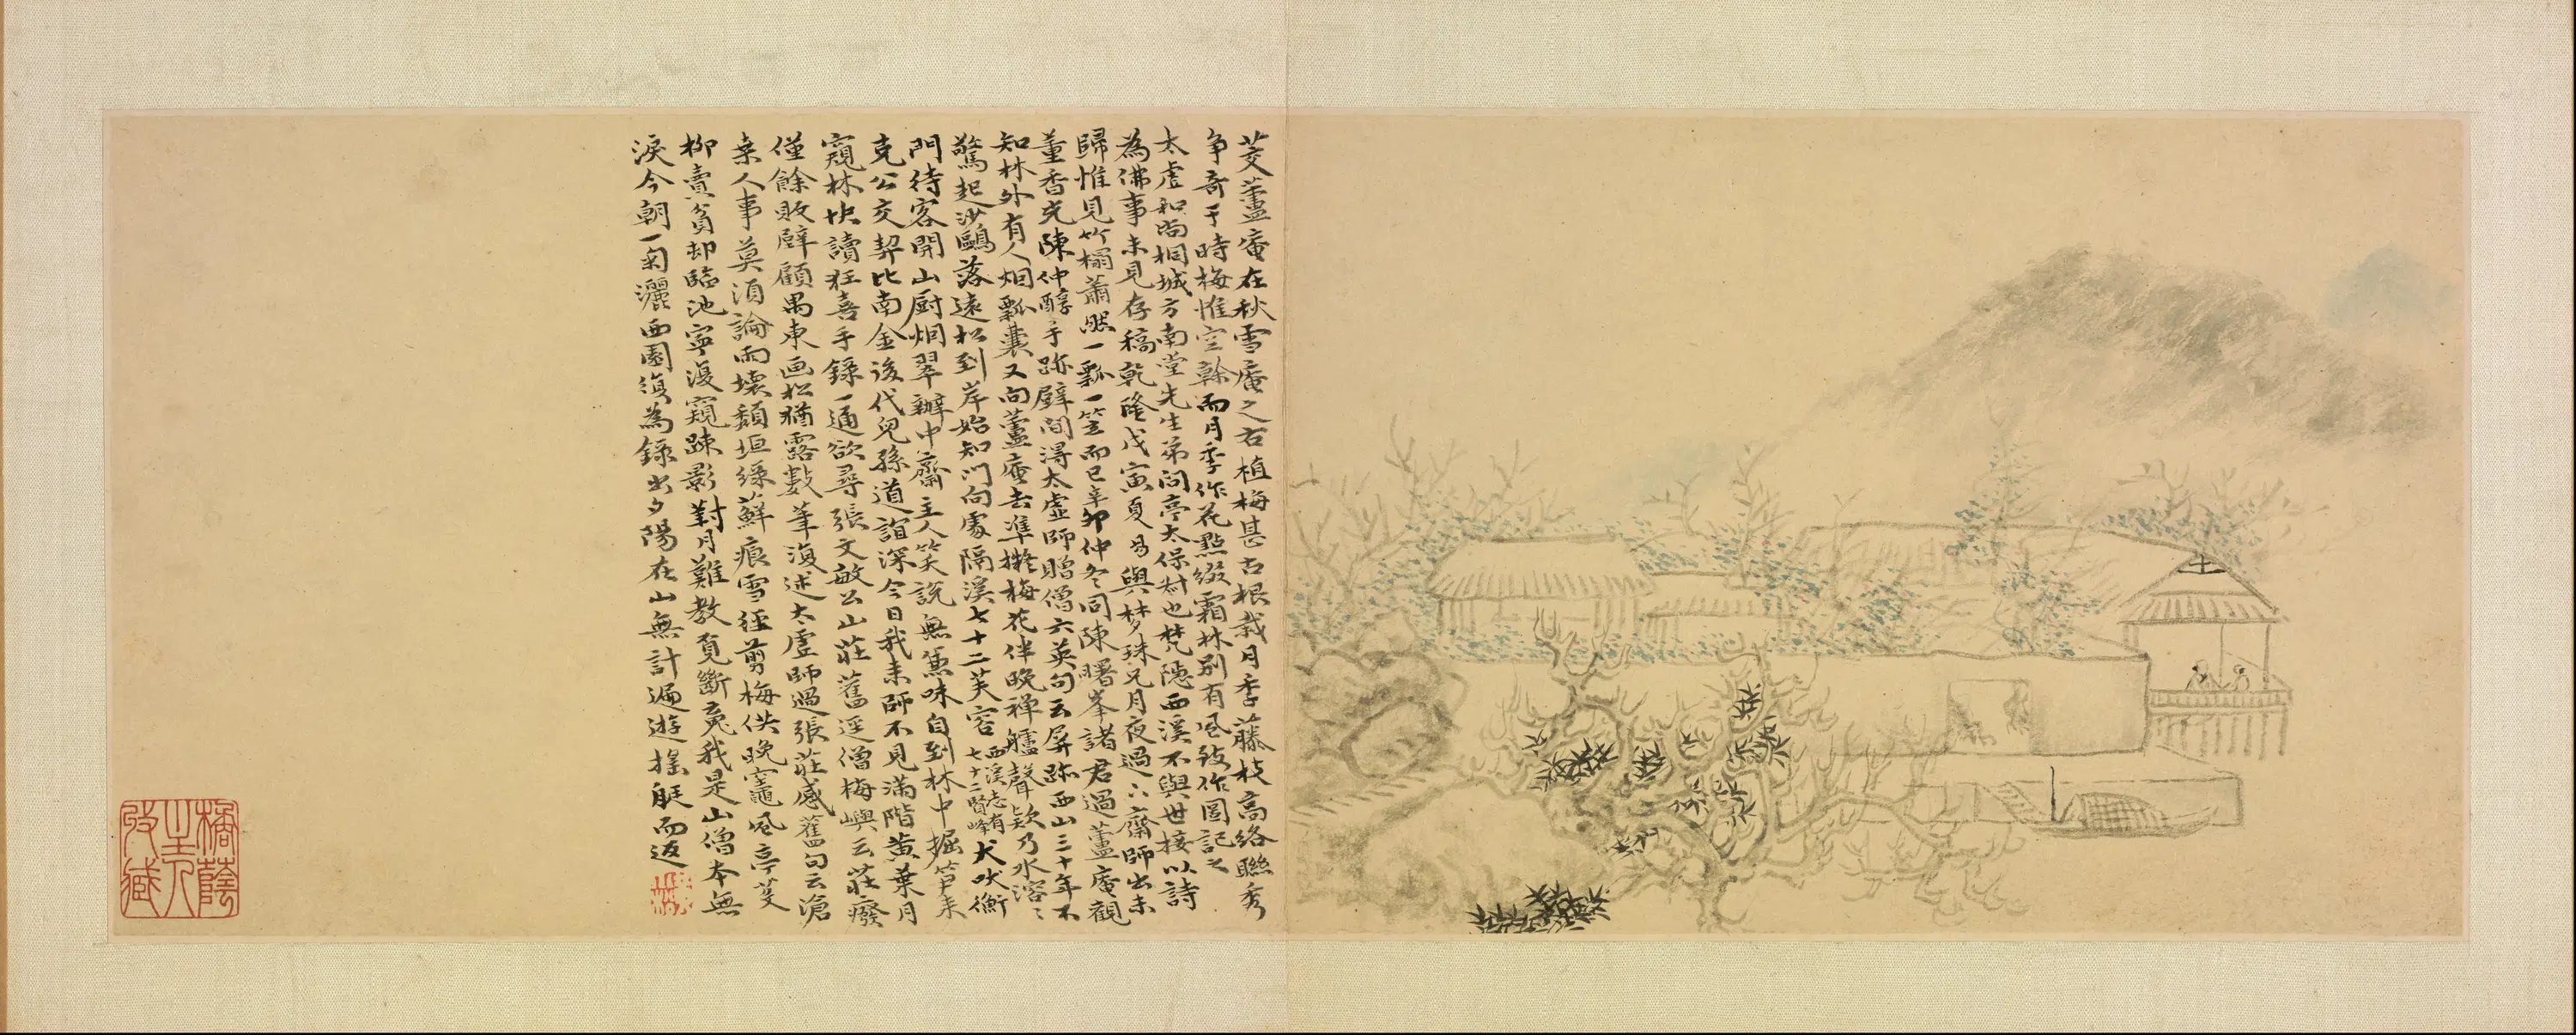 茭蘆庵在秋雪庵之右植梅甚古根栽月季藤枝高絡聯秀
争奇于時梅惟空幹而月季作花點綴霜林別有風致作圖記之
太虛和尚桐城方南堂先生弟問亭太保叔也梵隱西溪不與世接以詩
為佛事未見存稿乾隆戊寅夏曷與夢珠兄月夜過六齋師出未
歸惟見竹榻蕭然一瓢一笠而已辛卯仲冬同陳曙峯諸君過蘆庵觀
董香光陳仲醇手跡壁間得太虛師贈僧六英句云屏跡西山三十年不
知林外有人烟瓢囊又向蘆庵去準擬梅花伴晚禪艫聲欵乃水溶〻
驚起沙鷗落遠松到岸始知門向處隔溪七十二芙容西溪志有七十二賢峰犬吠衡
門待客開山厨烟翠辦中齋主人笑說無兼味自到林中掘笋來
克公交契比南金後代兒孫道誼深今日我來師不見滿階黃葉月
窺林快讀狂喜手錄一通欲尋張文敏公山莊舊逕僧梅嶼云莊癈
僅餘敗壁顧禺東画松猶露數筆復述太虛師過張莊感舊句云滄
桒人事莫須論雨壞頽垣綠蘚痕雪徑剪梅供晚竈風亭芟
柳賣貧邨臨池寧復窺踈影對月難教覓斷魂我是山僧本無
淚今朝一匊灑西園須為錄出夕陽在山無計遍遊搖艇而返
橋蔭
主人
收藏